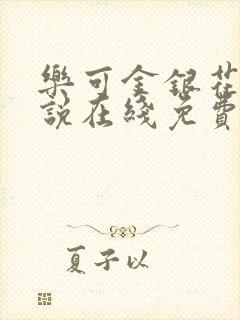 樂可金銀花
說在綫免費
夏子以